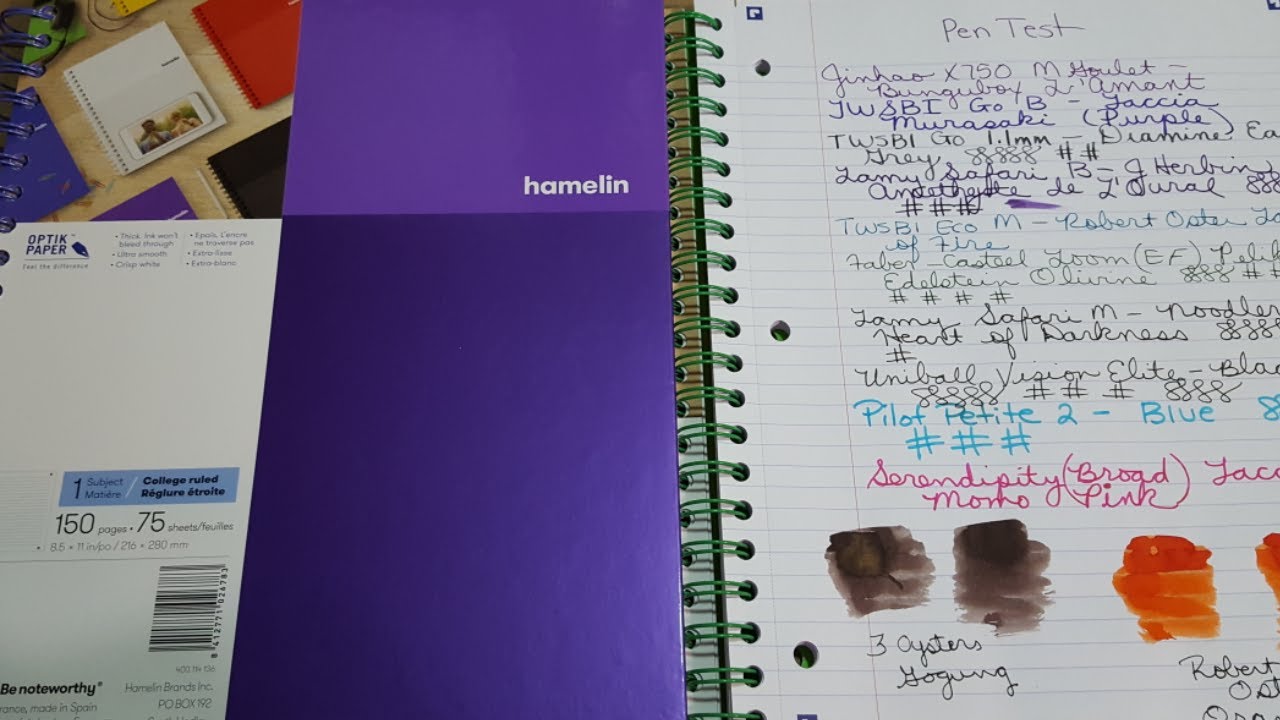 hamelin
OPTIK™
PAPER
Feel the difference
• Thick. Ink won't
bleed through
• Ultra smooth
• Crisp white
• Epais. L'encre
ne traverse pas
• Extra-lisse
• Extra-blanc
1 Subject / College ruled
Matière / Réglure étroite
150 pages • 75 sheets/feuilles
• 8.5 x 11 in/po / 216 x 280 mm
8 412771 026783
400 114 136
Be noteworthy®
rance, made in Spain
Hamelin Brands Inc.
PO BOX 192
hamelin
Pen Test
Jinhao X750 M Goulet -
Bungubox L'Amant
TWSBI Go B - Taccia
Murasaki (Purple)
TWSBI Go 1.1mm - Diamine Ea
Grey 88888 # #
Lamy Safari B - J Herbin
Amethyste de L'Oural 88
# # #
TWSBI Eco M - Robert Oster
of Fire
Faber-Castell Loom (EF) Pelik
Edelstein Olivine 888 # #
# # # #
Lamy Safari M - Noodler
Heart of Darkness 888
#
Uniball Vision Elite - Blac
88888 # # # 888
Pilot Petite 2 - Blue 8
# # #
Serendipity (Broad) Tacc
Momo (Pink)
3 Oysters
Gogung
Robert
Ost